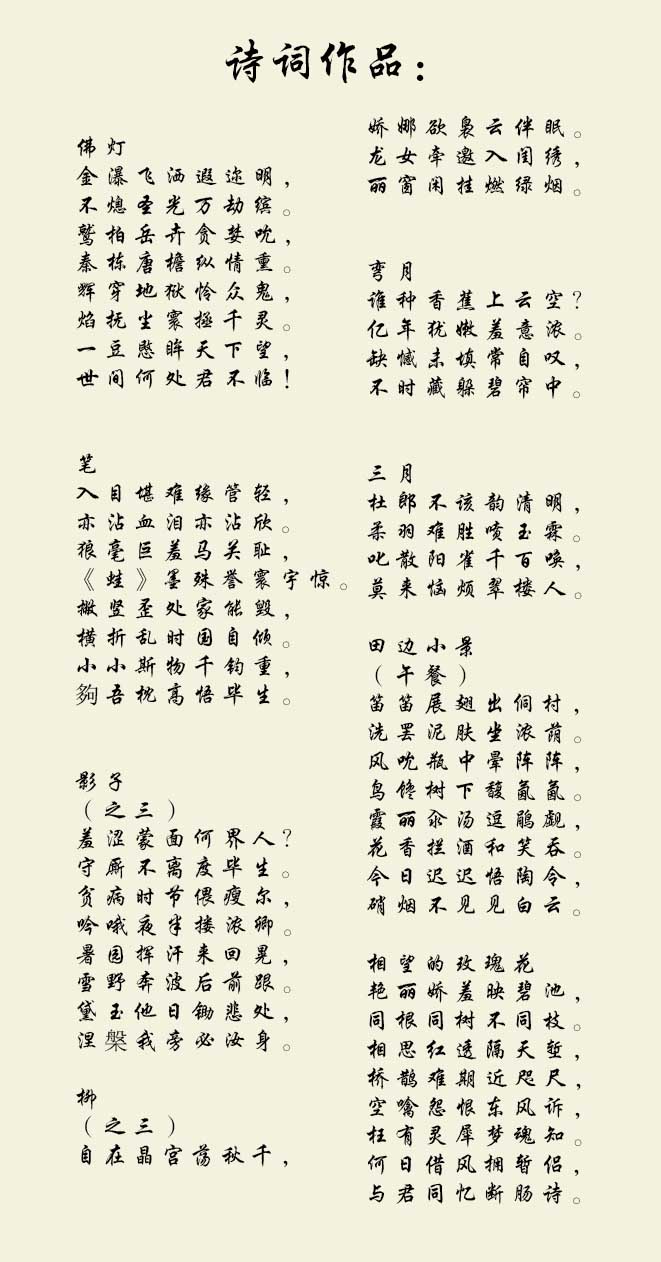 诗词作品：
佛灯
金瀑飞洒遐迩明，
不熄圣光万劫缤。
鹫柏岳卉贪婪吮，
秦栋唐檐纵情熏。
辉穿地狱怜众鬼，
焰抚尘寰拯千灵。
一豆愍眸天下望，
世间何处君不临！
笔
入目堪难缘管轻，
亦沾血泪亦沾欣。
狼毫巨羞马关耻，
《蛙》墨殊誉寰宇惊。
撇竖歪处家能毁，
横折乱时国自倾。
小小斯物千钧重，
夠吾枕高悟毕生。
影子
（之三）
羞涩蒙面何界人？
守厮不离度毕生。
贫病时节偎瘦尔，
吟哦夜半搂浓卿。
暑园挥汗来回晃，
雪野奔波后前跟。
黛玉他日锄悲处，
涅槃我旁必汝身。
柳
（之三）
自在晶宫荡秋千，
娇娜欲袅云伴眠。
龙女牵邀入闺绣，
丽窗闲挂燃绿烟。
弯月
谁种香蕉上云空？
亿年犹嫩羞意浓。
缺憾未填常自叹，
不时藏躲碧帘中。
三月
杜郎不该韵清明，
柔羽难胜喷玉霖。
叱散阳雀千百唤，
莫来恼烦翠楼人。
田边小景
（午餐）
笛笛展翅出侗村，
洗罢泥肤坐浓荫。
风吹瓶中晕阵阵，
鸟馋树下馥氤氤。
霞丽汆汤逗鹃觑，
花香拦酒和笑吞。
今日迟迟悟陶令，
硝烟不见见白云。
相望的玫瑰花
艳丽娇羞映碧池，
同根同树不同枝。
相思红透隔天堑，
桥鹊难期近咫尺，
空噙怨恨东风诉，
枉有灵犀梦魂知。
何日借风拥暂侣，
与君同忆断肠诗。